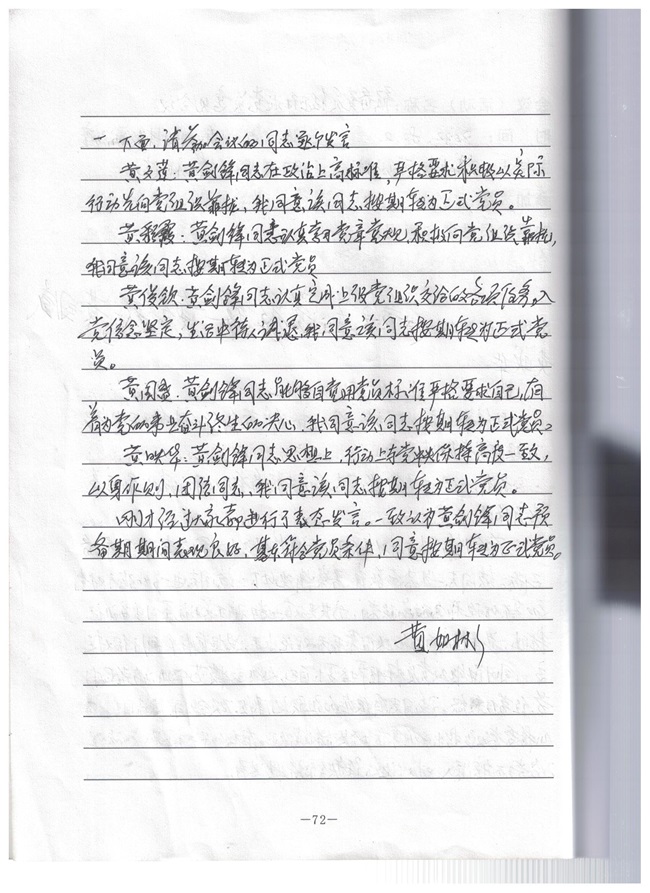 一下面,请参加会议的同志逐个发言
黄文莲:黄剑锋同志在政治上高标准,严格要求,积极以实际
行动先向党组织靠拢,我同意该同志按期转为正式党员。
黄 霞:黄剑锋同志认真学习党章党规,积极向党组织靠拢,
我同意该同志按期转为正式党员
黄俊钦:黄剑锋同志认真完成上级党组织交给的各项任务,入
党信念坚定,生活中待人诚恳,我同意该同志按期转为正式党
员。
黄国 :黄剑锋同志能够自觉用党员标准严格要求自己,有
着为党的事业奋斗终生的决心,我同意该同志按期转为正式党员。
黄映华:黄剑锋同志思想上,行动上与党中央保持高度一致,
以身作则,团结同志,我同意该同志按期转为正式党员。
刚才经过大家都进行了表态发言。一致认为黄剑锋同志预
备期期间表现良好,基本符合党员条件,同意按期转为正式党员。
黄如彬
—72—